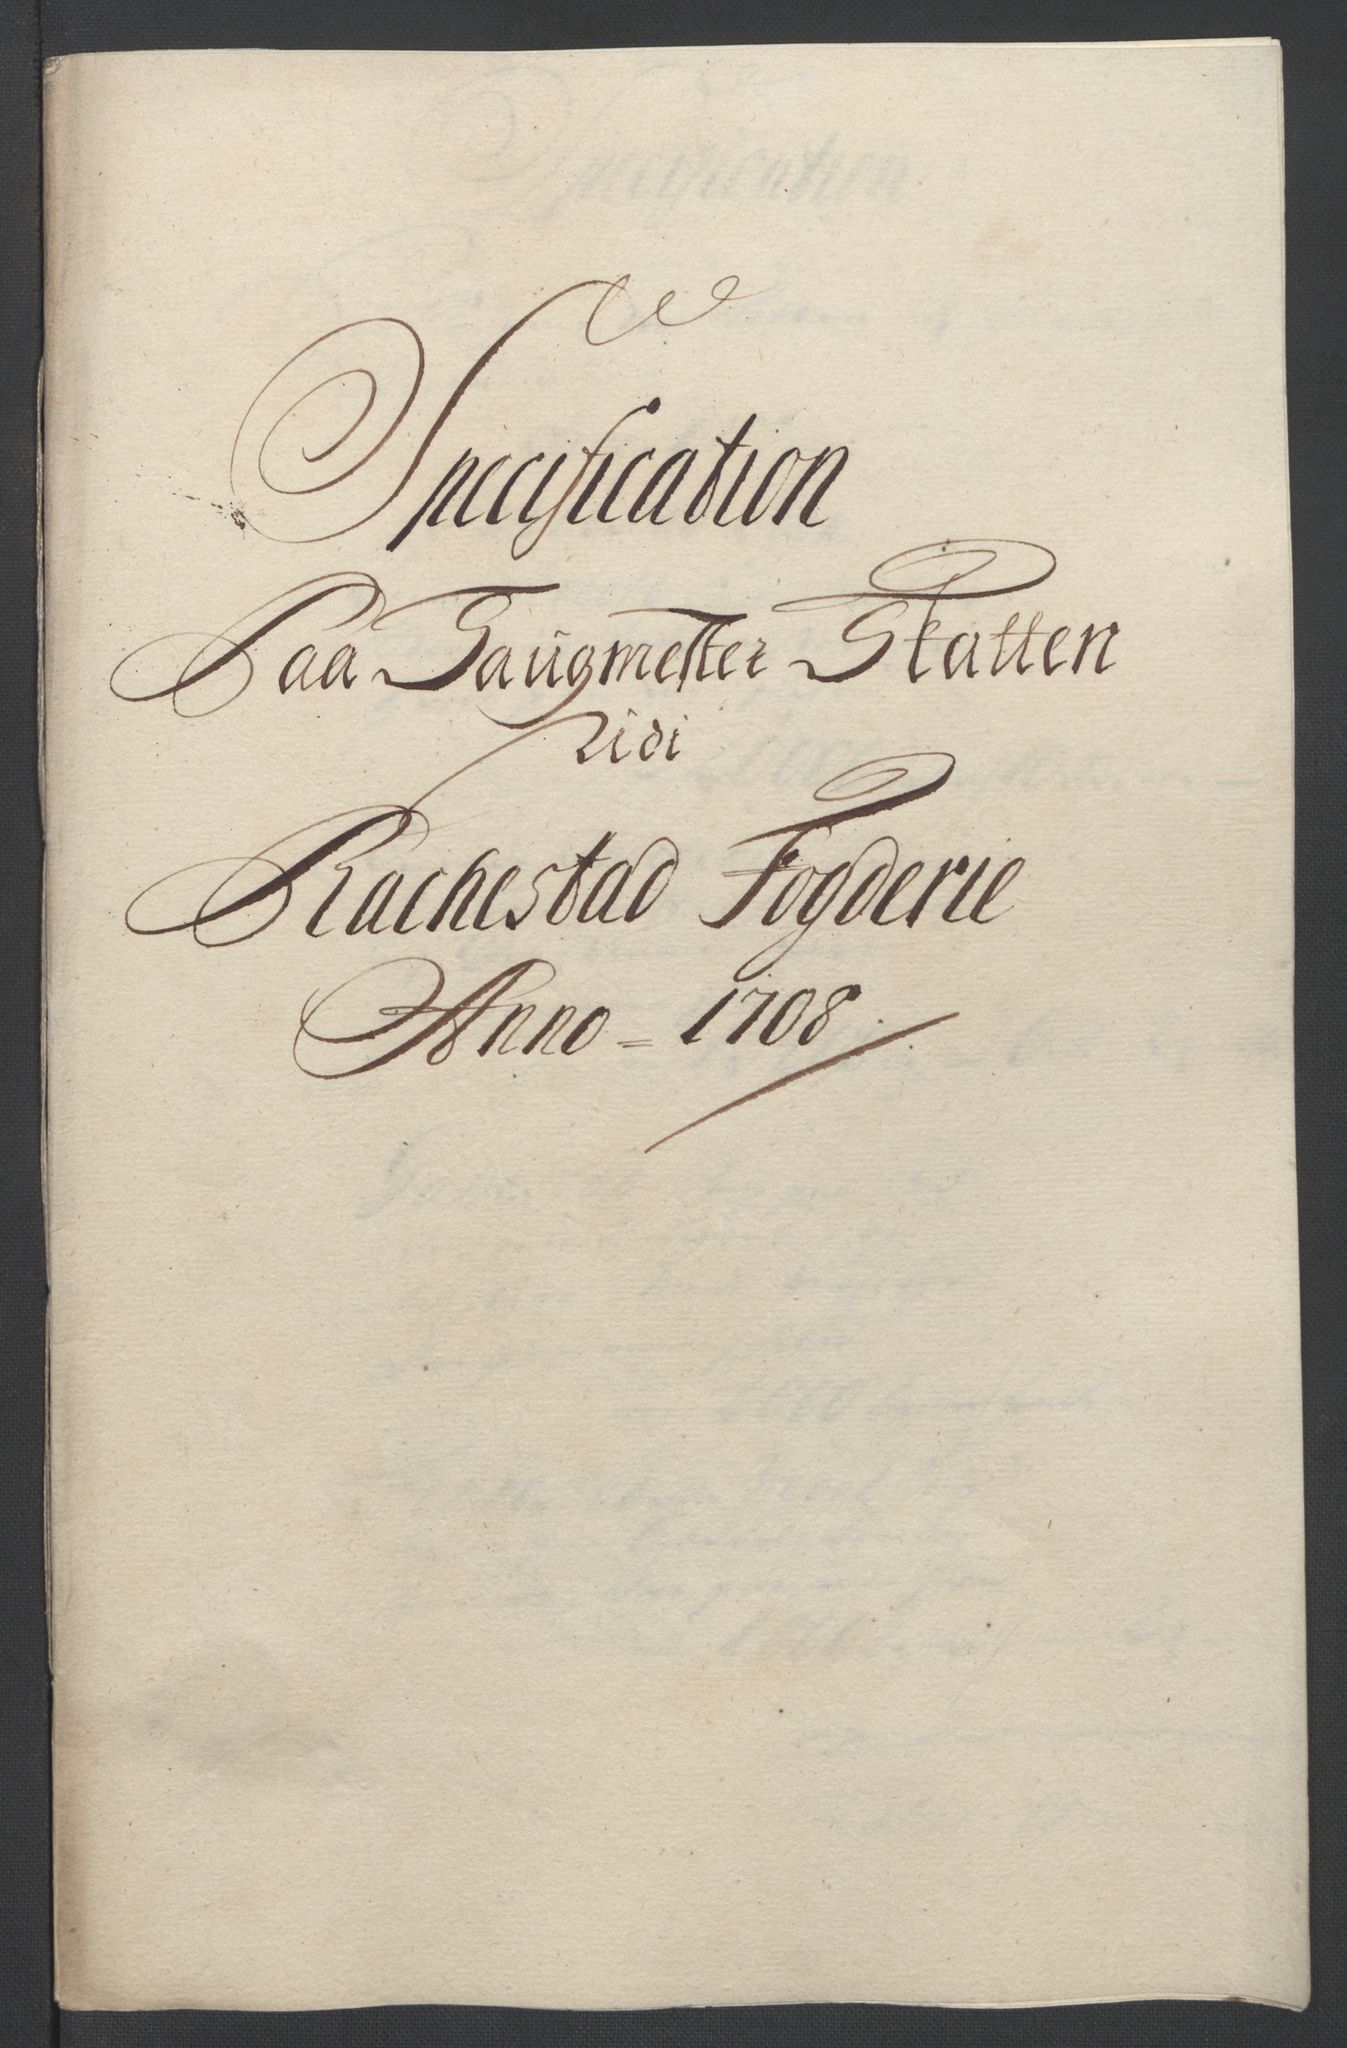 Specification
Paa Saugmester Skatten
udi
Rachestad Fogderie
Anno - 1708